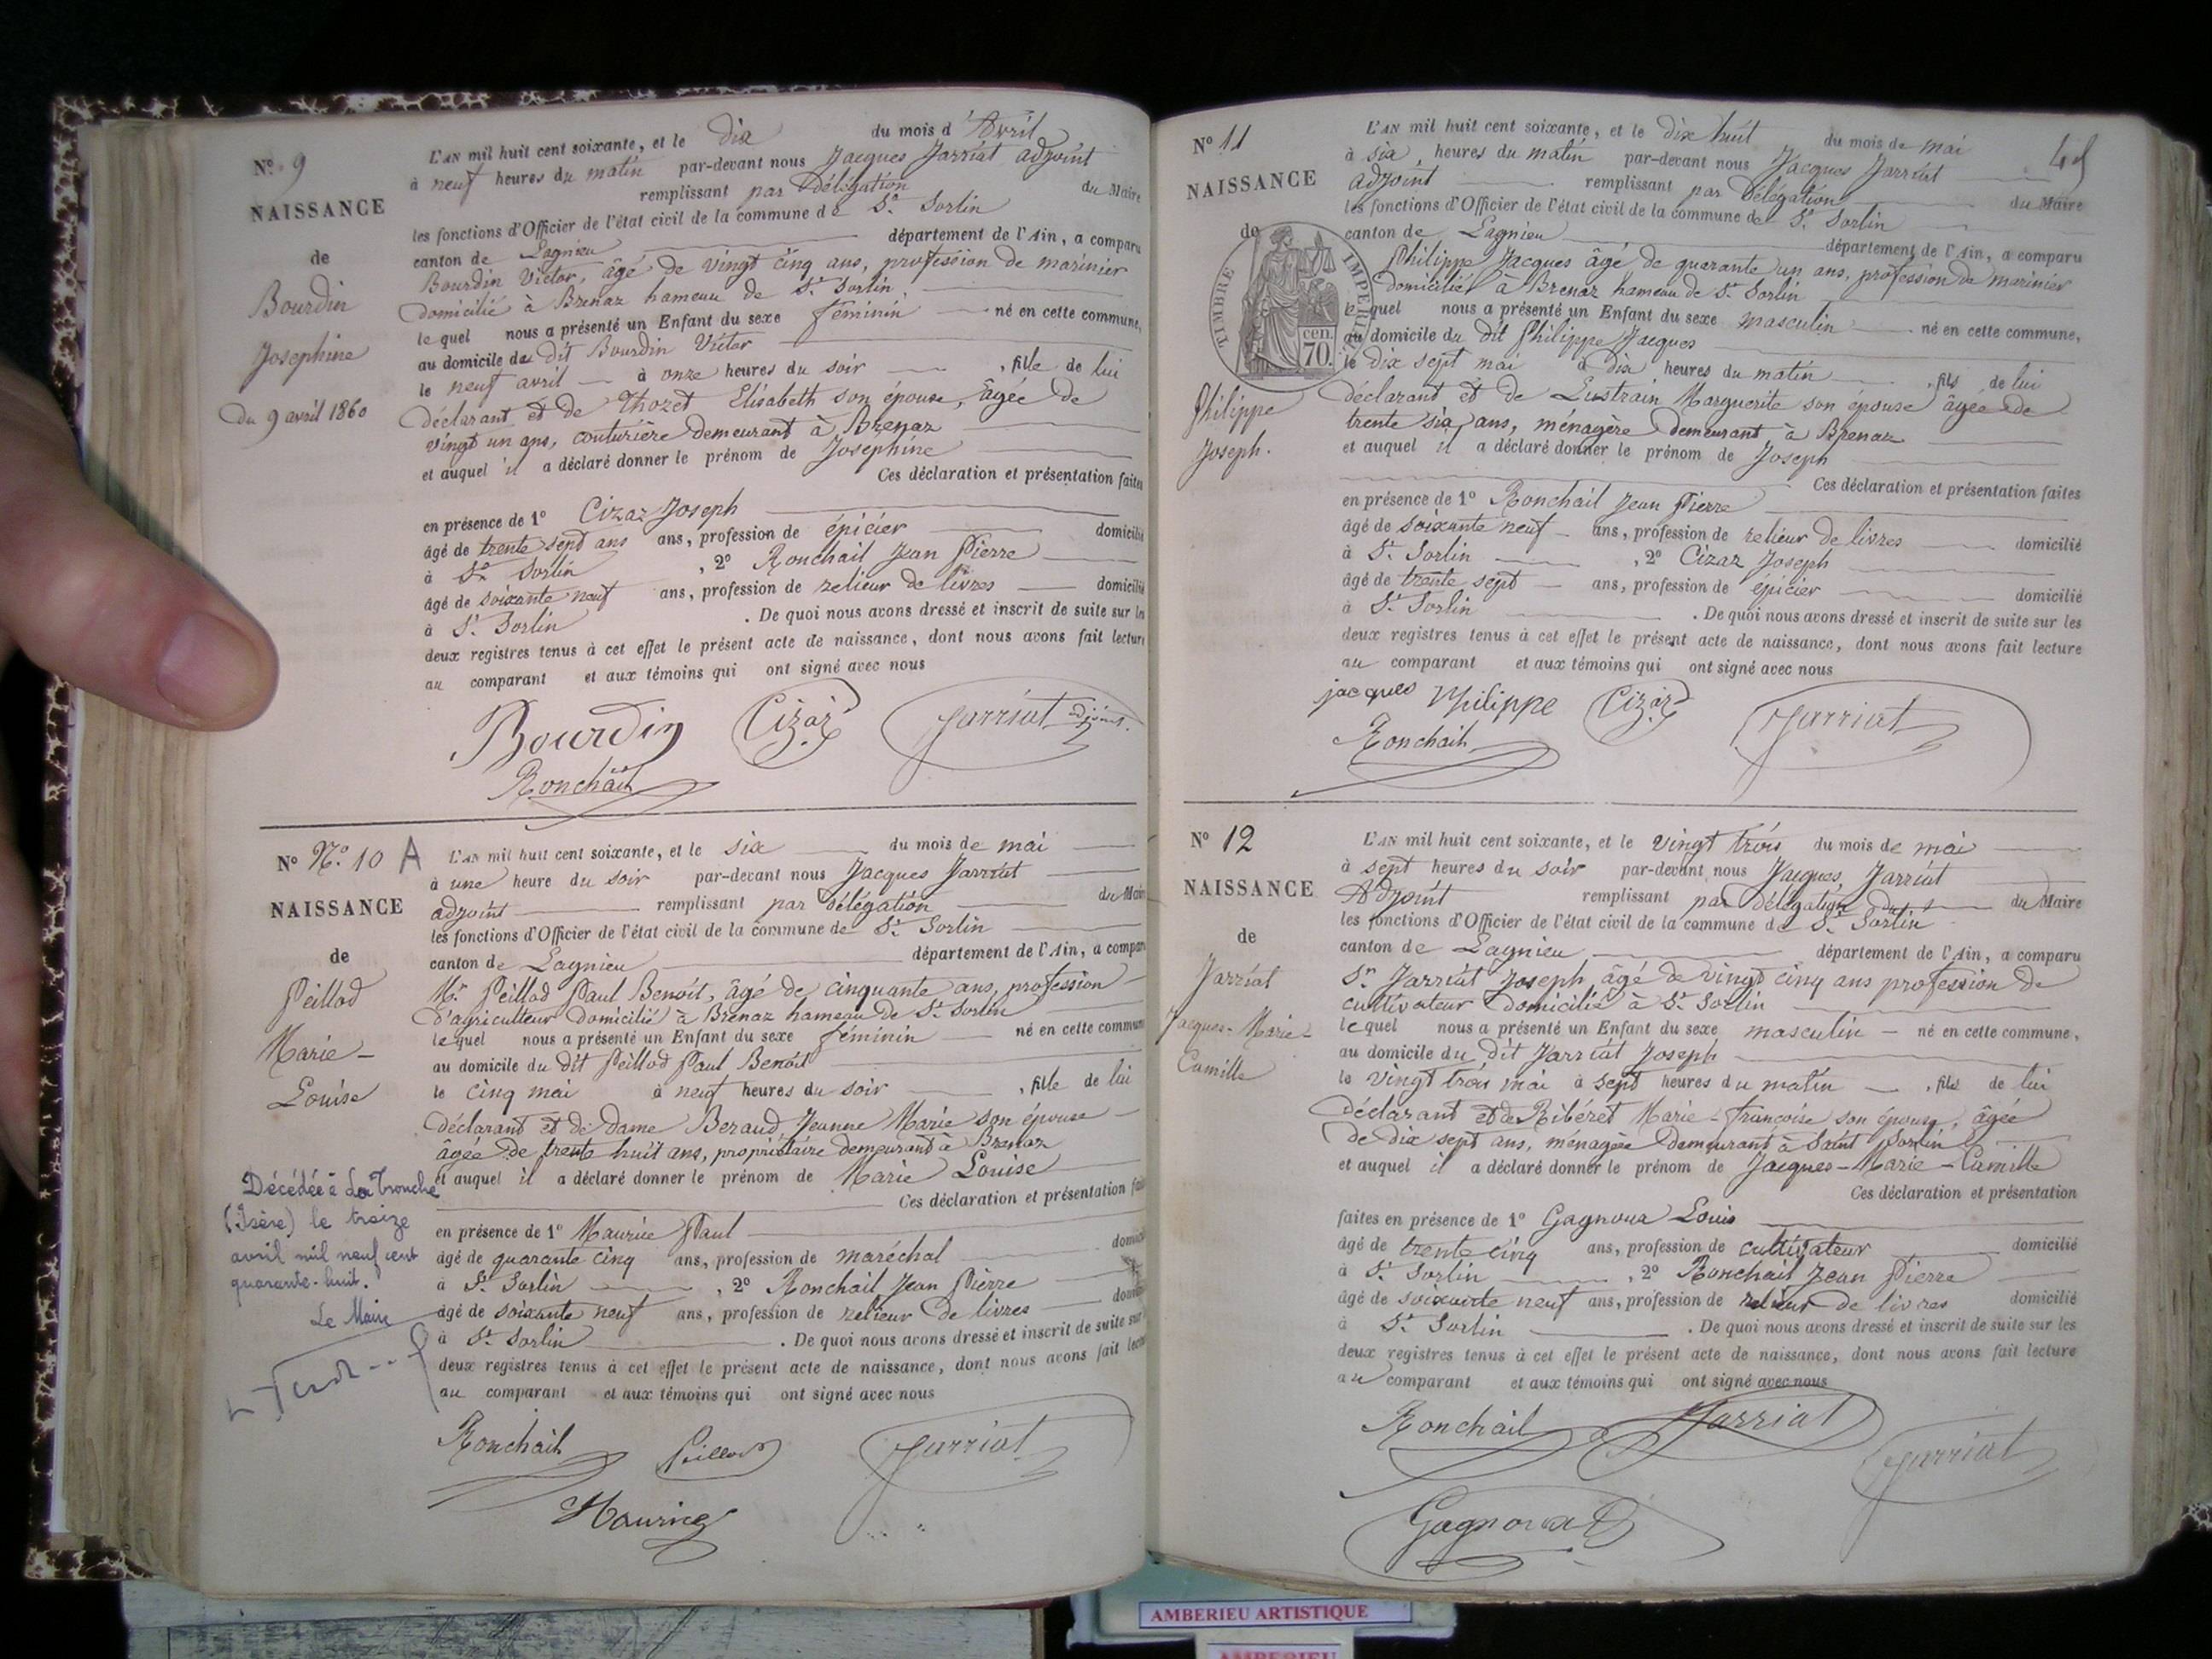 N° 9
NAISSANCE
de
Bourdin
Josephine
du 9 avril 1860
L'AN mil huit cent soixante, et le dix du mois d'Avril
à neuf heures du matin par-devant nous Jacques Jarriat adjoint
remplissant par délégation du Maire
les fonctions d'Officier de l'état civil de la commune de St Sorlin
canton de Lagnieu département de l'Ain, a comparu
Bourdin Victor, âgé de vingt cinq ans, profession de marinier
domicilié à Brenaz hameau de St Sorlin
le quel nous a présenté un Enfant du sexe féminin né en cette commune,
au domicile du dit Bourdin Victor
le neuf avril à onze heures du soir , fille de lui
déclarant et de Thozet Elisabeth son épouse, âgée de
vingt un ans, couturière demeurant à Brenaz
et auquel il a déclaré donner le prénom de Joséphine
Ces déclaration et présentation faites
en présence de 1° Cizaz Joseph
âgé de trente sept ans ans, profession de épicier domicilié
à St Sorlin , 2° Ronchail Jean Pierre
âgé de soixante neuf ans, profession de relieur de livres domicilié
à St Sorlin . De quoi nous avons dressé et inscrit de suite sur les
deux registres tenus à cet effet le présent acte de naissance, dont nous avons fait lecture
au comparant et aux témoins qui ont signé avec nous
Bourdin Cizaz Jarriat adjoint.
Ronchail
N° N° 10 A
NAISSANCE
de
Peillod
Marie-
Louise
L'AN mil huit cent soixante, et le six du mois de mai
à une heure du soir par-devant nous Jacques Jarriat
adjoint remplissant par délégation du Maire
les fonctions d'Officier de l'état civil de la commune de St Sorlin
canton de Lagnieu département de l'Ain, a comparu
Mr Peillod Paul Benoit, âgé de cinquante ans, profession
d'agriculteur domicilié à Brenaz hameau de St Sorlin
lequel nous a présenté un Enfant du sexe féminin né en cette commune
au domicile du dit Peillod Paul Benoit
le cinq mai à neuf heures du soir , fille de lui
déclarant et de dame Beraud Jeanne Marie son épouse
âgée de trente huit ans, propriétaire demeurant à Brenaz
et auquel il a déclaré donner le prénom de Marie Louise
Ces déclaration et présentation
en présence de 1° Maurice Paul
âgé de quarante cinq ans, profession de maréchal
à St Sorlin , 2° Ronchail Jean Pierre
âgé de soixante neuf ans, profession de relieur de livres
à St Sorlin . De quoi nous avons dressé et inscrit de suite sur
deux registres tenus à cet effet le présent acte de naissance, dont nous avons fait
au comparant et aux témoins qui ont signé avec nous
Décédée à La Tronche
(Isère) le treize
avril mil neuf cent
quarante-huit.
Le Maire
Ronchail Peillod Jarriat
Maurice
N° 11
NAISSANCE
de
TIMBRE IMPERIAL
cen.
70.
Philippe
Joseph.
L'AN mil huit cent soixante, et le dix huit du mois de mai
à six, heures du matin par-devant nous Jacques Jarriat
adjoint remplissant par délégation du Maire
les fonctions d'Officier de l'état civil de la commune de St Sorlin
canton de Lagnieu département de l'Ain, a comparu
Philippe Jacques âgé de quarante un ans, profession de marinier
domicilié à Brenaz hameau de St Sorlin
le quel nous a présenté un Enfant du sexe masculin né en cette commune,
au domicile du dit Philippe Jacques
le dix sept mai à dix heures du matin , fils de lui
déclarant et de Lustrain Marguerite son épouse âgée de
trente six ans, ménagère demeurant à Brenaz
et auquel il a déclaré donner le prénom de Joseph
Ces déclaration et présentation faites
en présence de 1° Ronchail Jean Pierre
âgé de soixante neuf ans, profession de relieur de livres domicilié
à St Sorlin , 2° Cizaz Joseph
âgé de trente sept ans, profession de épicier domicilié
à St Sorlin . De quoi nous avons dressé et inscrit de suite sur les
deux registres tenus à cet effet le présent acte de naissance, dont nous avons fait lecture
au comparant et aux témoins qui ont signé avec nous
jacques philippe Cizaz Jarriat
Ronchail
N° 12
NAISSANCE
de
Jarriat
Jacques-Marie-
Camille
L'AN mil huit cent soixante, et le vingt trois du mois de mai
à sept heures du soir par-devant nous Jacques Jarriat
Adjoint remplissant par délégation du Maire
les fonctions d'Officier de l'état civil de la commune de St Sorlin
canton de Lagnieu département de l'Ain, a comparu
Sr Jarriat Joseph âgé de vingt cinq ans profession de
cultivateur domicilié à St Sorlin
lequel nous a présenté un Enfant du sexe masculin né en cette commune,
au domicile du dit Jarriat Joseph
le vingt trois mai à sept heures du matin , fils de lui
déclarant et de Ribéret Marie-françoise son épouse, âgée
de dix sept ans, ménagère demeurant à Saint Sorlin
et auquel il a déclaré donner le prénom de Jacques-Marie-Camille
Ces déclaration et présentation
faites en présence de 1° Gagnoux Louis
âgé de trente cinq ans, profession de cultivateur domicilié
à St Sorlin , 2° Ronchail Jean Pierre
âgé de soixante neuf ans, profession de relieur de livres domicilié
à St Sorlin . De quoi nous avons dressé et inscrit de suite sur les
deux registres tenus à cet effet le présent acte de naissance, dont nous avons fait lecture
au comparant et aux témoins qui ont signé avec nous
Ronchail Jarriat Jarriat
Gagnoux
AMBERIEU ARTISTIQUE
AMBERIEU